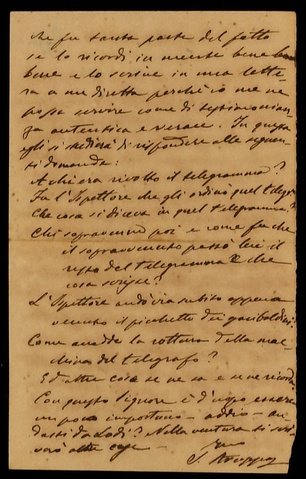 che fu tanta parte del fatto
se lo ricordi in mente bene
bene e lo scrive in una lette-
ra a me diretta perchè io me ne
possa servire come di testimonian-
za autentica e verace. In questa
egli si di rispondere alle seguen-
ti domande:
A chi era rivolto il telegramma?
Fu l'Ispettore che gli ordinò quel telegr
Che cosa si diceva in quel telegramma?
Chi sopravenne poi e come fu che
il sopravvenuto passò lui il
resto del telegramma e che
cosa scrisse?
L'Ispettore andò via subito appena
venuto il picchetto dei garibaldini?
Come accadde la rottura della mac-
china del telegrafo?
Ed altre cose se ne sa e se ne ricorda.
Con questo Signore è d'uopo essere
un poco importuno - addio - an-
dasti da Lodi? Nella ventura ti scri-
verò altre cose -